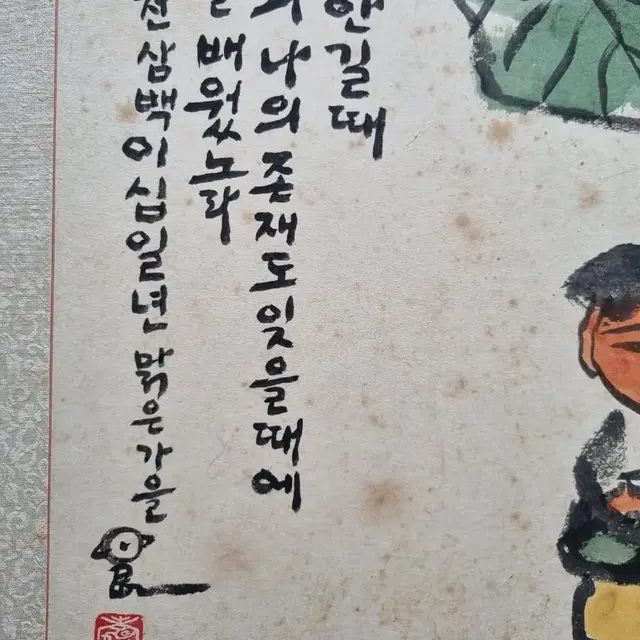 안길때
나의 존재도 잊을때에
배웠노라
천삼백이십일년 맑은가을